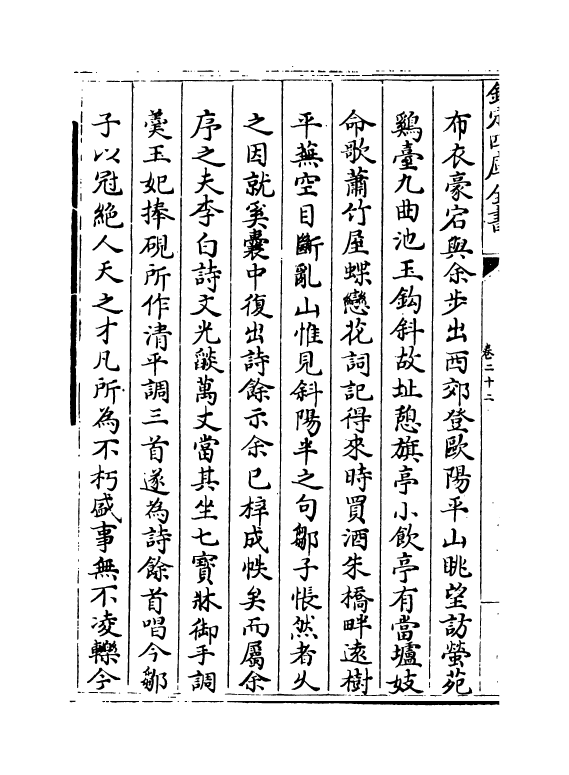 欽定四庫全書
卷二十二
布衣豪宕與余步出西郊登歐陽平山眺望訪螢苑
鷄臺九曲池玉鈎斜故址憩旗亭小飲亭有當壚妓
命歌蕭竹屋蝶戀花詞記得來時買酒朱橋畔遠樹
平蕪空目斷亂山惟見斜陽半之句鄒子悵然者乆
之因就奚囊中復出詩餘示余已梓成帙矣而屬余
序之夫李白詩文光燄萬丈當其坐七寳牀御手調
羮玉妃捧硯所作清平調三首遂為詩餘首唱今鄒
子以冠絶人天之才凡所為不朽盛事無不凌轢今